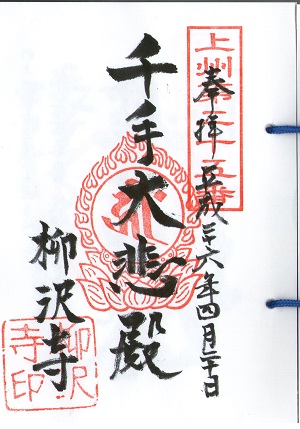 上州第二十五番
奉拝 平成二十六年四月二十日
千手大悲殿
柳沢寺
柳沢
寺印